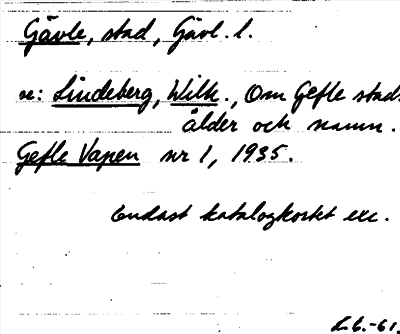 Gävle, stad, Gävl. l.
se: Lindeberg, Wilh., Om Gefle stads
ålder och namn.
Gefle Vapen nr 1, 1935.
Endast katalogkortet exc.
L.E.-61.